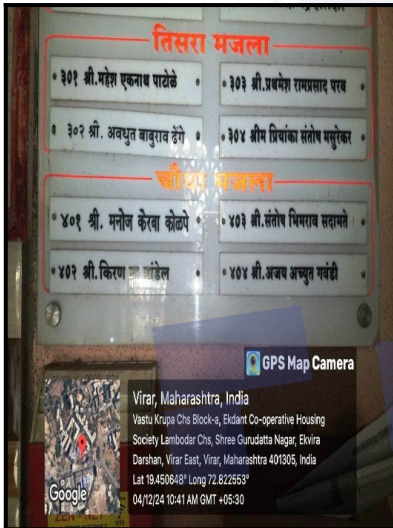 तिसरा मजला
• ३०१ श्री.महेश एकनाथ पाटोळे •
• ३०३ श्री.प्रथमेश रामप्रसाद परब
• ३०२ श्री. अवधुत बाबुराव ढेंगे •
• ३०४ श्रीम प्रियांका संतोष मसुरेकर •
चौथा मजला
• ४०१ श्री. मनोज केरबा कोळपे •
• ४०३ श्री.संतोष भिमराव सदामते •
• ४०२ श्री.किरण
• ४०४ श्री.अजय अच्युत गवंडी •
GPS Map Camera
Virar, Maharashtra, India
Vastu Krupa Chs Block-a, Ekdant Co-operative Housing
Society Lambodar Chs, Shree Gurudatta Nagar, Ekvira
Darshan, Virar East, Virar, Maharashtra 401305, India
Lat 19.450648° Long 72.822553°
04/12/24 10:41 AM GMT +05:30
Google